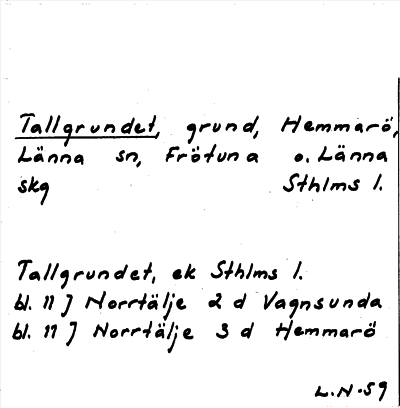 Tallgrundet, grund, Hemmarö,
Länna sn, Frötuna o. Länna
skg Sthlms l.
Tallgrundet, ek Sthlms l.
bl. 11 J Norrtälje 2 d Vagnsunda
bl. 11 J Norrtälje 3 d Hemmarö
L.N-59